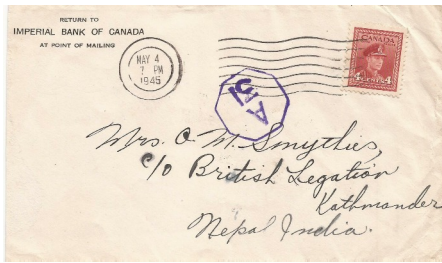 RETURN TO
IMPERIAL BANK OF CANADA
AT POINT OF MAILING
MAY 4
7 PM
1945
CANADA
4 CENTS 4
Mrs. O. M. Smythies,
c/o British Legation
Kathmander
Nepal India.